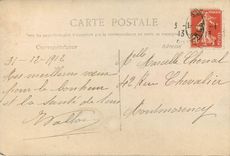 CARTE POSTALE
Correspondance
Adresse
31-12-1912
Mes meilleurs vœux
pour le bonheur
et la santé de tous
Melle Marcelle Chenal
42 Rue Chevalier
Montmorency